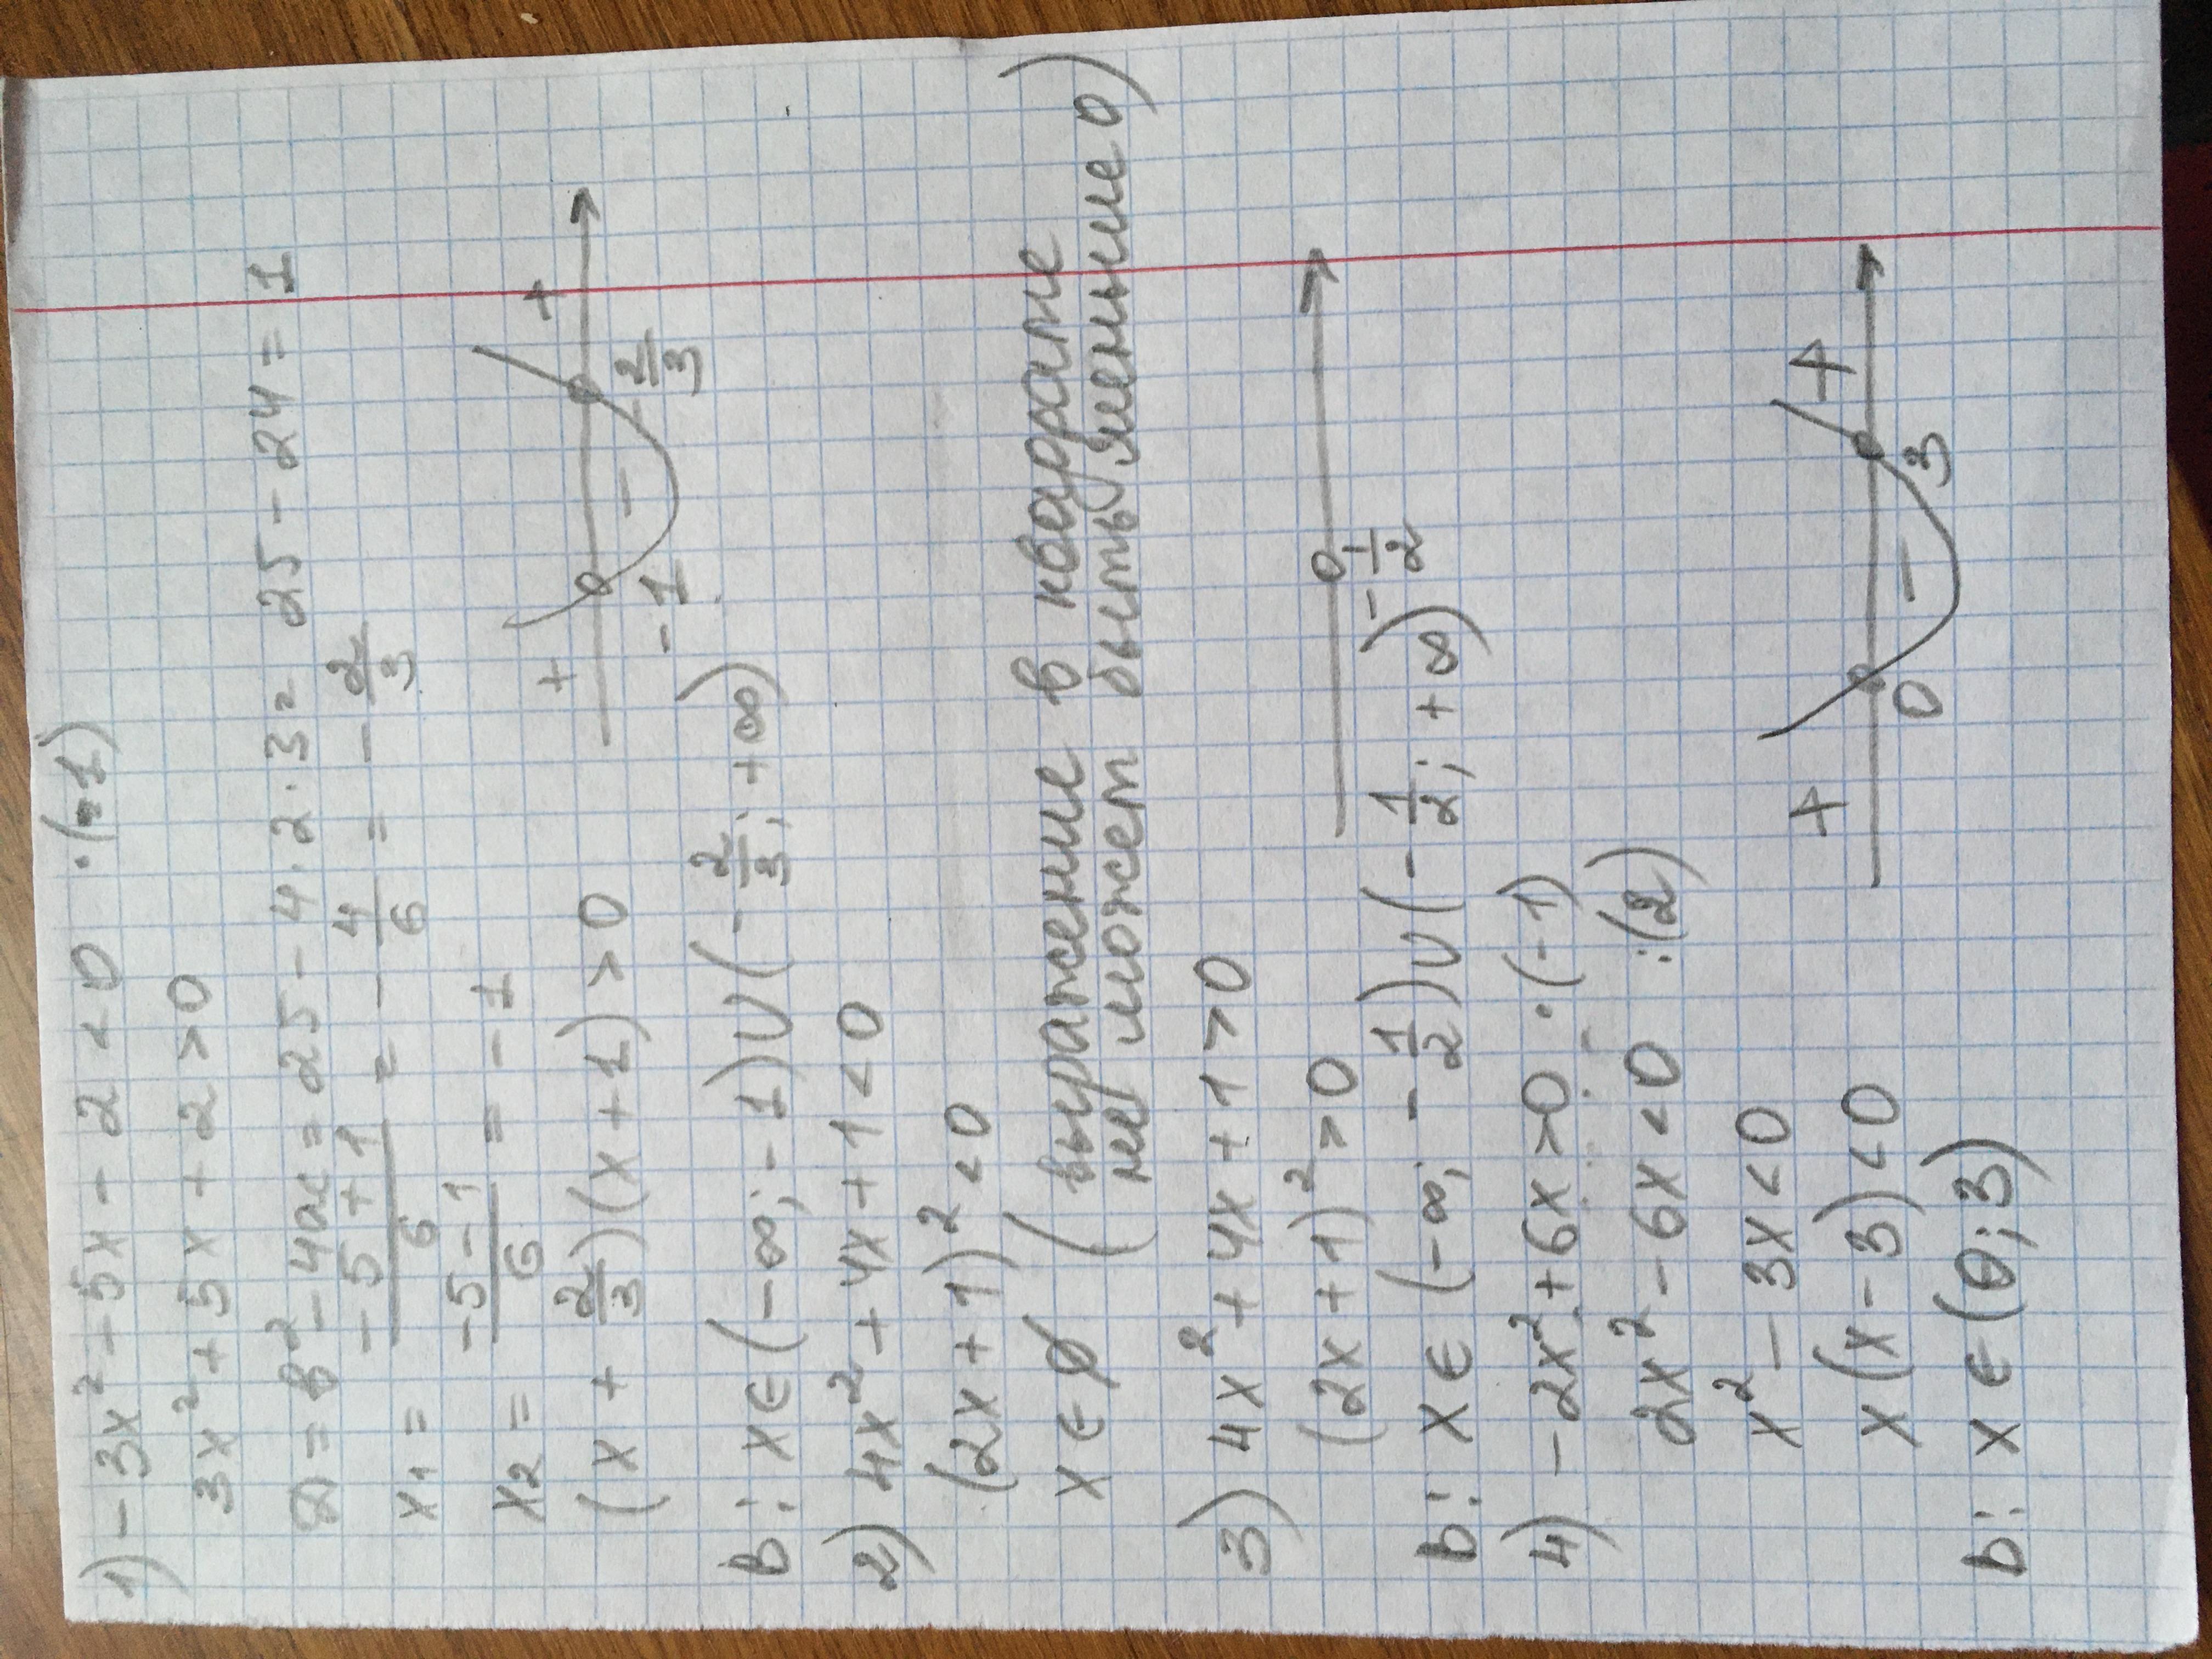 1) -3x² - 5x - 2 < 0 ·(-1)
3x² + 5x + 2 > 0
D = b² - 4ac = 25 - 4·2·3 = 25 - 24 = 1
x₁ = (-5+1)/6 = -4/6 = -2/3
x₂ = (-5-1)/6 = -1
(x + 2/3)(x + 1) > 0
+ - +
-1 2/3
b: x ∈ (-∞; -1) ∪ (-2/3; +∞)
2) 4x² + 4x + 1 < 0
(2x + 1)² < 0
x ∈ ∅ (выражение в квадрате
не может быть меньше 0)
3) 4x² + 4x + 1 > 0
(2x + 1)² > 0
-1/2
b: x ∈ (-∞; -1/2) ∪ (-1/2; +∞)
4) -2x² + 6x > 0 ·(-1)
2x² - 6x < 0 :(2)
x² - 3x < 0
x(x - 3) < 0
+ - +
0 3
b: x ∈ (0; 3)